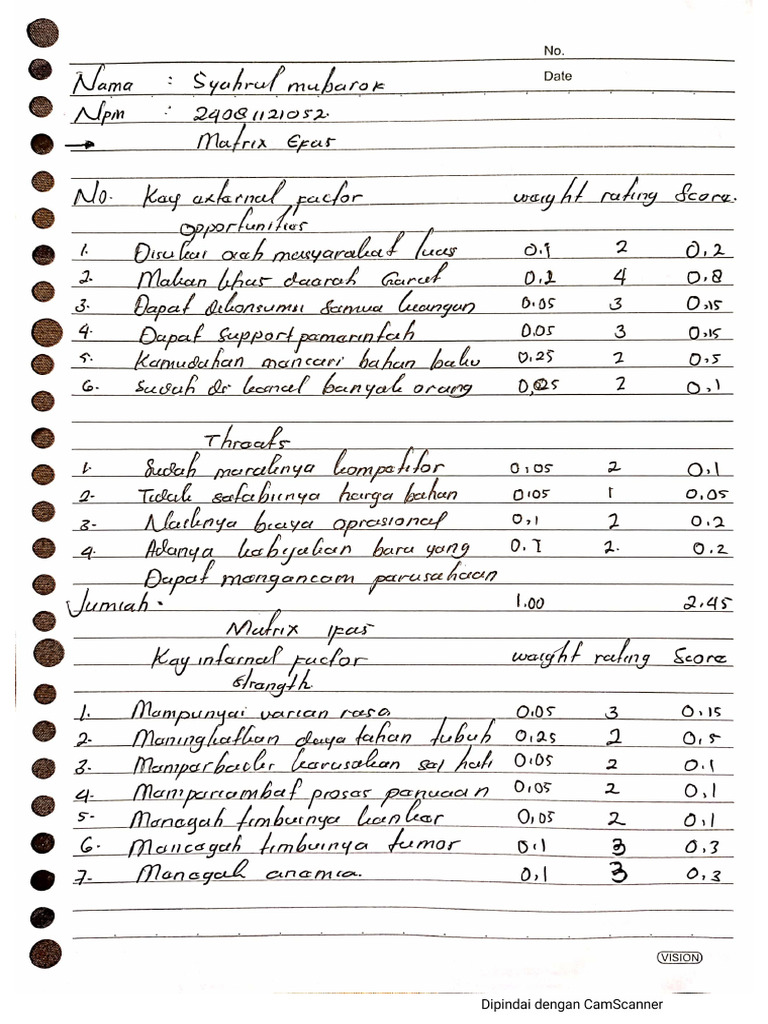 No.
Date
Nama : Syahrul mubarok
Npm : 24081121052.
→ Matrix Efas
No. Kay external factor waight rating Score.
Opportunities
1. Disukai oleh masyarakat luas 0.1 2 0,2
2. Makan khas daarah Garut 0.2 4 0,8
3. Dapat dikonsumsi samua kuangan 0.05 3 0,15
4. Dapat support pamarintah 0.05 3 0,15
5. Kamudahan mancari bahan baku 0,25 2 0,5
6. Sudah di kanal banyak orang 0,025 2 0,1
Threats
1. Sudah maraknya kompetitor 0,05 2 0,1
2. Tidak satabilnya harga bahan 0,05 1 0,05
3. Naiknya biaya oprasional 0,1 2 0.2
4. Adanya kabijakan baru yang 0.1 2. 0.2
Dapat mangancam parusahaan
Jumlah. 1.00 2.45
Matrix Ifas
Kay internal Factor waight rating Score
strangth
1. Mampunyai varian rasa 0.05 3 0,15
2. Maningkatkan daya tahan tubuh 0,25 2 0,5
3. Mamparbaiki karusakan sal hati 0.05 2 0.1
4. Mamparlambat prosas panuaan 0,05 2 0,1
5. Managah timbulnya kankar 0,05 2 0,1
6. Mancagah timbulnya tumor 0.1 3 0.3
7. Managah anamia. 0,1 3 0,3
VISION
Dipindai dengan CamScanner